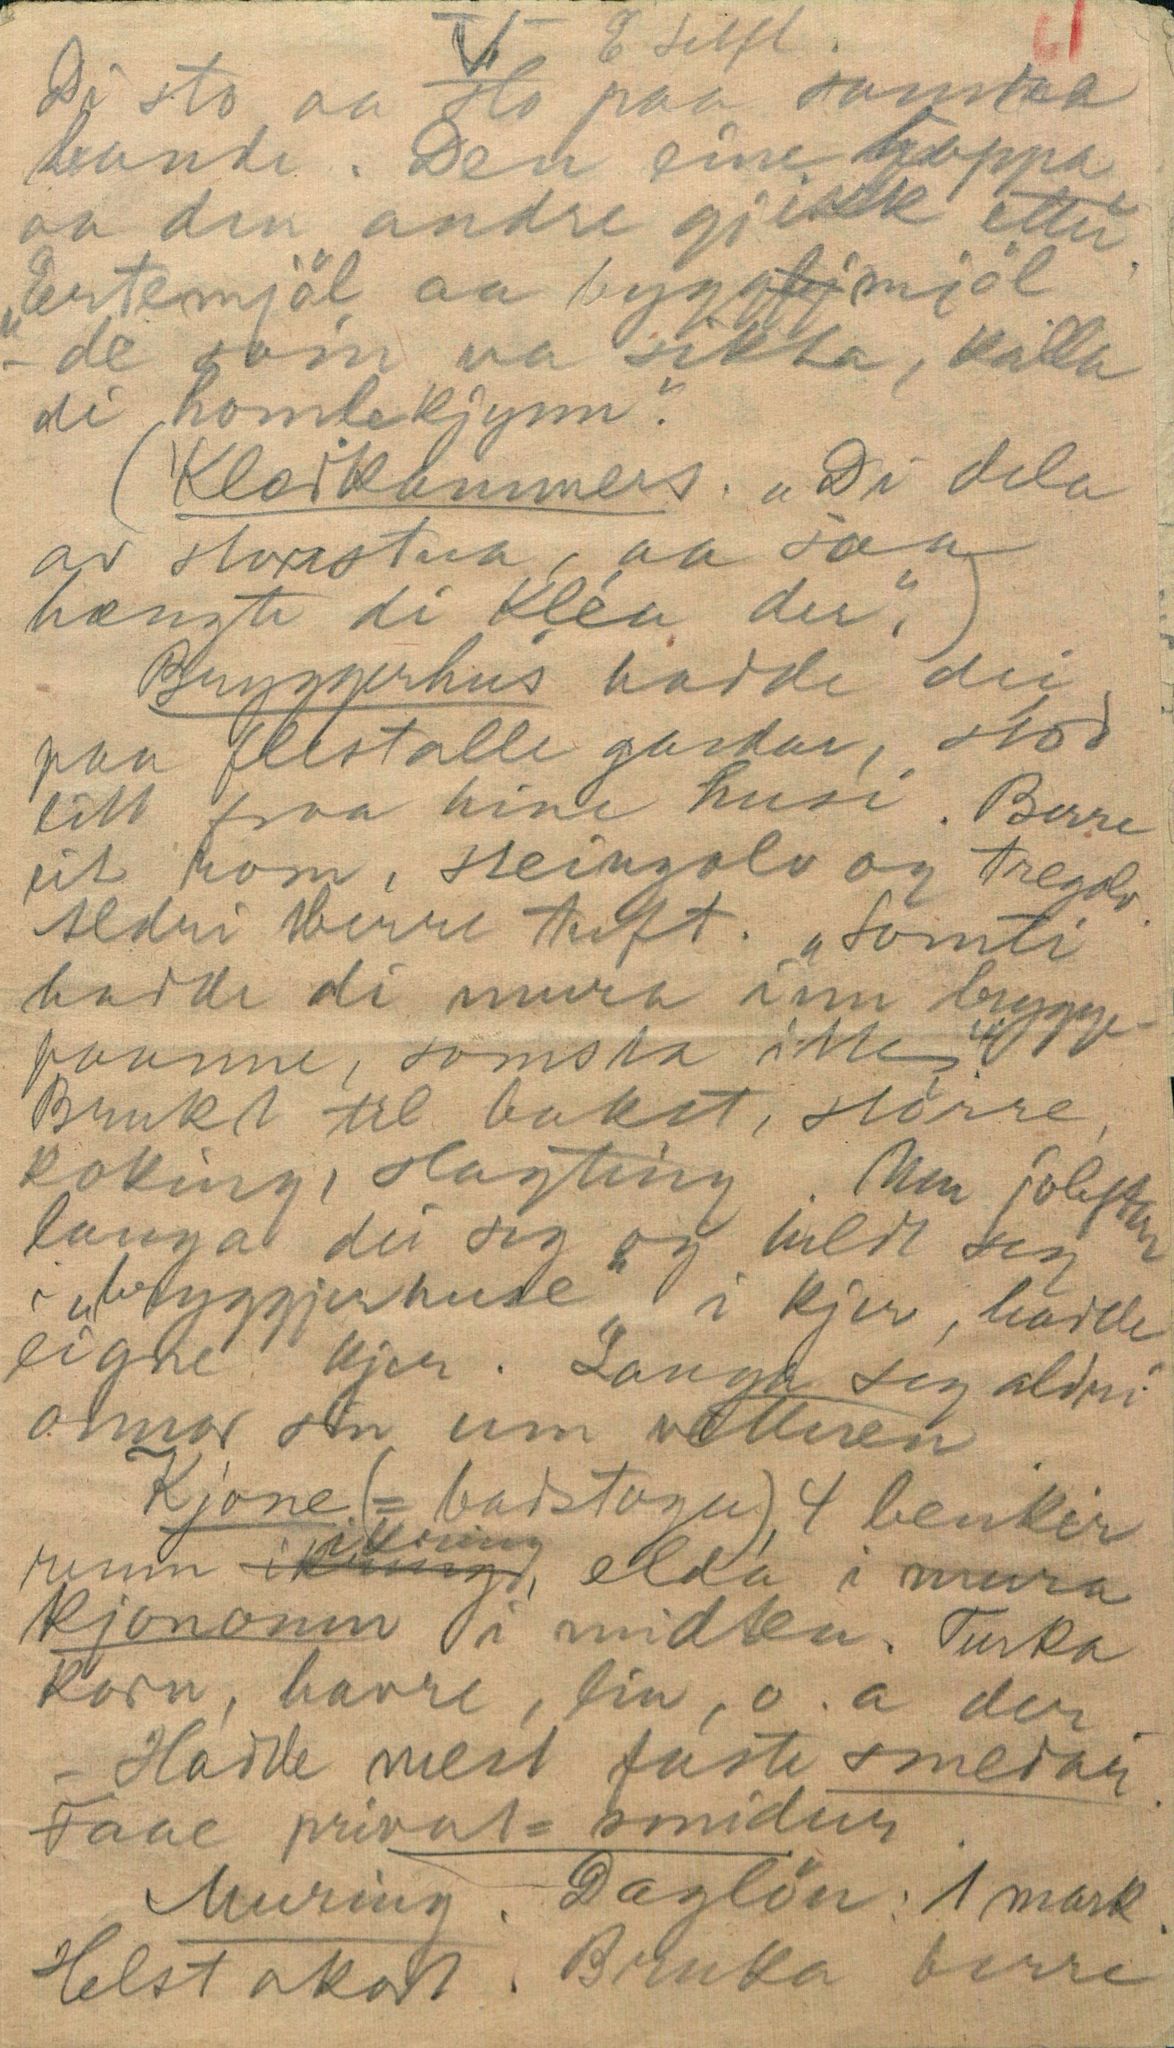 VI E Selfl. 61
Di sto aa slo paa samtaa
bande. Den eine hoppa
aa den andre gjikk etter.
"Ertemjöl aa byggmjöl
- de som va sikta, kalla
di homlekjynn".
(Kledkammers. "Di dela
av storstua, aa saa
hængte di Klea der".)
Bryggerhus hadde dei
paa flestalle gardar, stod
litt fraa hine husi. Berre
eit rom, steingolv og tregolv.
Aldri berre tuft. "Somti
hadde di mura inn brygge-
paanne, somsta itte"
Brukt til bakst, större
koking, slagting. Men joleftan
lauga dei seg og heldt seg
i "bryggjerhuse" i kjer, hadde
eigne kjer. Lauga seg aldri
annar sin um vetteren
Kjone (= badstogu), 4 benkir
reum ikring, elda i mura
kjonomn i midten. Turka
korn, havre, lin, o. a der
- Hadde mest faste smedar.
Faae privat= smidur.
Muring. Daglön: 1 mark.
Helst akort. Bruka berre